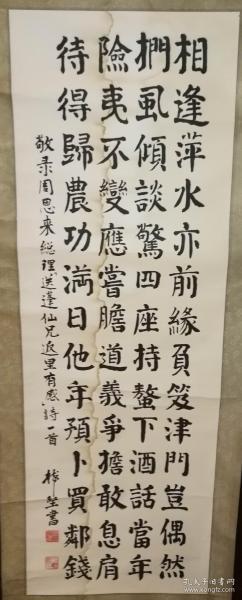 相逢萍水亦前緣負笈津門豈偶然
捫虱傾談驚四座持螯下酒話當年
險夷不變應嘗膽道義爭擔敢息肩
待得歸農功满日他年預卜買鄰錢
敬录周恩来総理送蓬仙兄返里有感詩一首
書
孔夫子旧书网